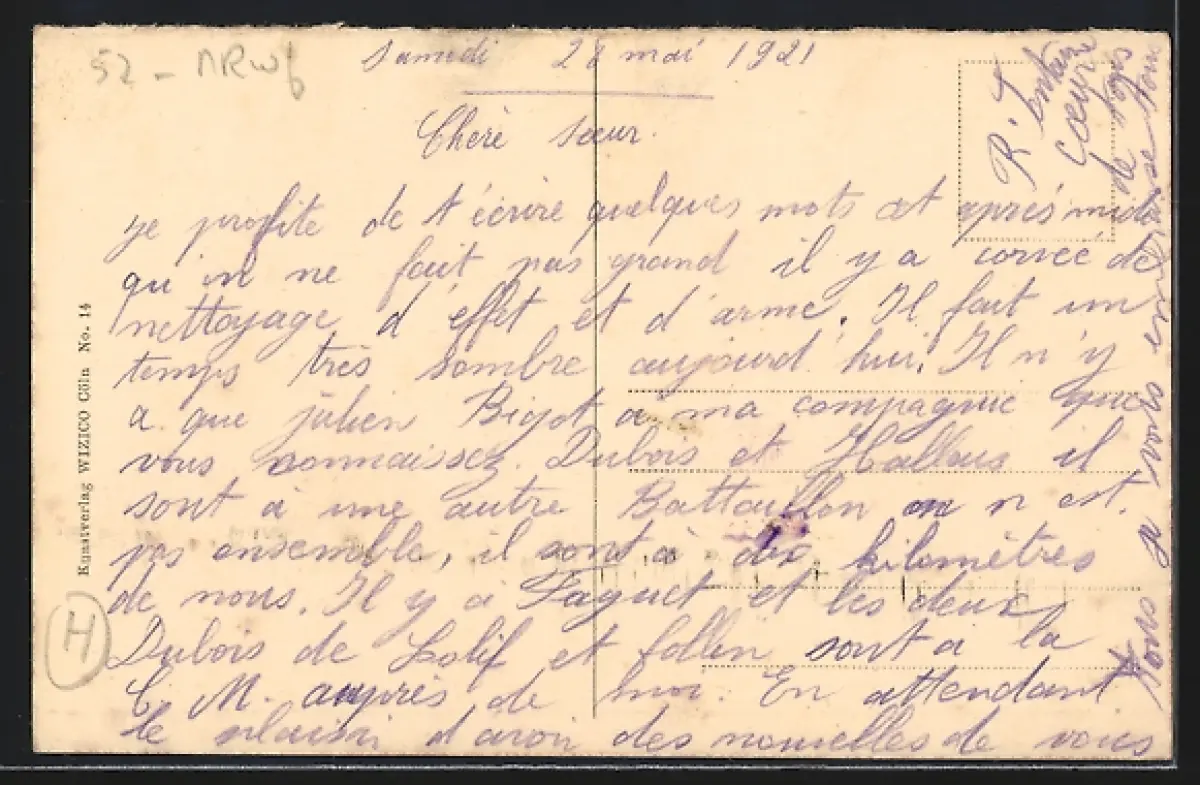 52 - NRWf
Samedi 28 mai 1921
Cherè sœur.
je profite de t'écrire quelques mots cet après midi
qu'on ne fait pas grand il y a corvée de
nettoyage d'effet et d'arme. Il fait un
temps très sombre aujourd'hui. Il n'y
a que julien Bigot a ma compagnie que
vous connaissez. Dubois et Hallais il
sont à une autre Battaillon on n est
pas ensemble, il sont à dix kilomètres
de nous. Il y a Faguet et les deux
Dubois de Lolif et follin sont a la
C M. auprès de moi. En attendant
le plaisir d'avoir des nouvelles de vous
tous a vous en
cœur
de
R.
Kunstverlag WIZICO Cöln No. 14
H